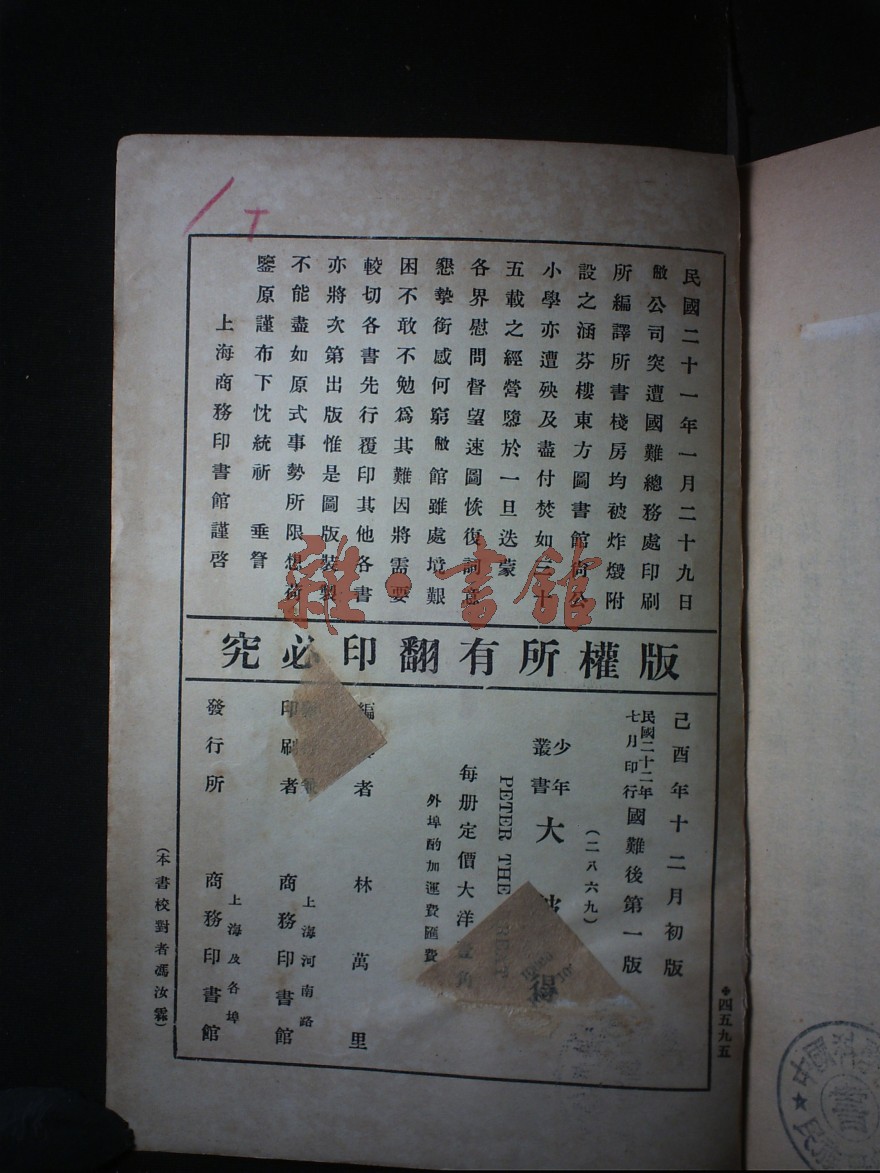 民國二十一年一月二十九日
敝公司突遭國難總務處印刷
所編譯所書棧房均被炸燬附
設之涵芬樓東方圖書館尙公
小學亦遭殃及盡付焚如三十
五載之經營隳於一旦迭蒙
各界慰問督望速圖恢復詞意
懇摯銜感何窮敝館雖處境艱
困不敢不勉爲其難因將需要
較切各書先行覆印其他各書
亦將次第出版惟是圖版裝製
不能盡如原式事勢所限想荷
鑒原謹布下忱統祈 垂詧
上海商務印書館謹啓
雜·書館
版權所有翻印必究
己酉年十二月初版
民國二十二年七月印行國難後第一版
(二八六九)
少年叢書 大 得
PETER THE GREAT
每册定價大洋壹角
外埠酌加運費匯費
編 者 林萬里
印刷者 上海河南路 商務印書館
發行所 上海及各埠 商務印書館
(本書校對者馮汝霖)
四五九五